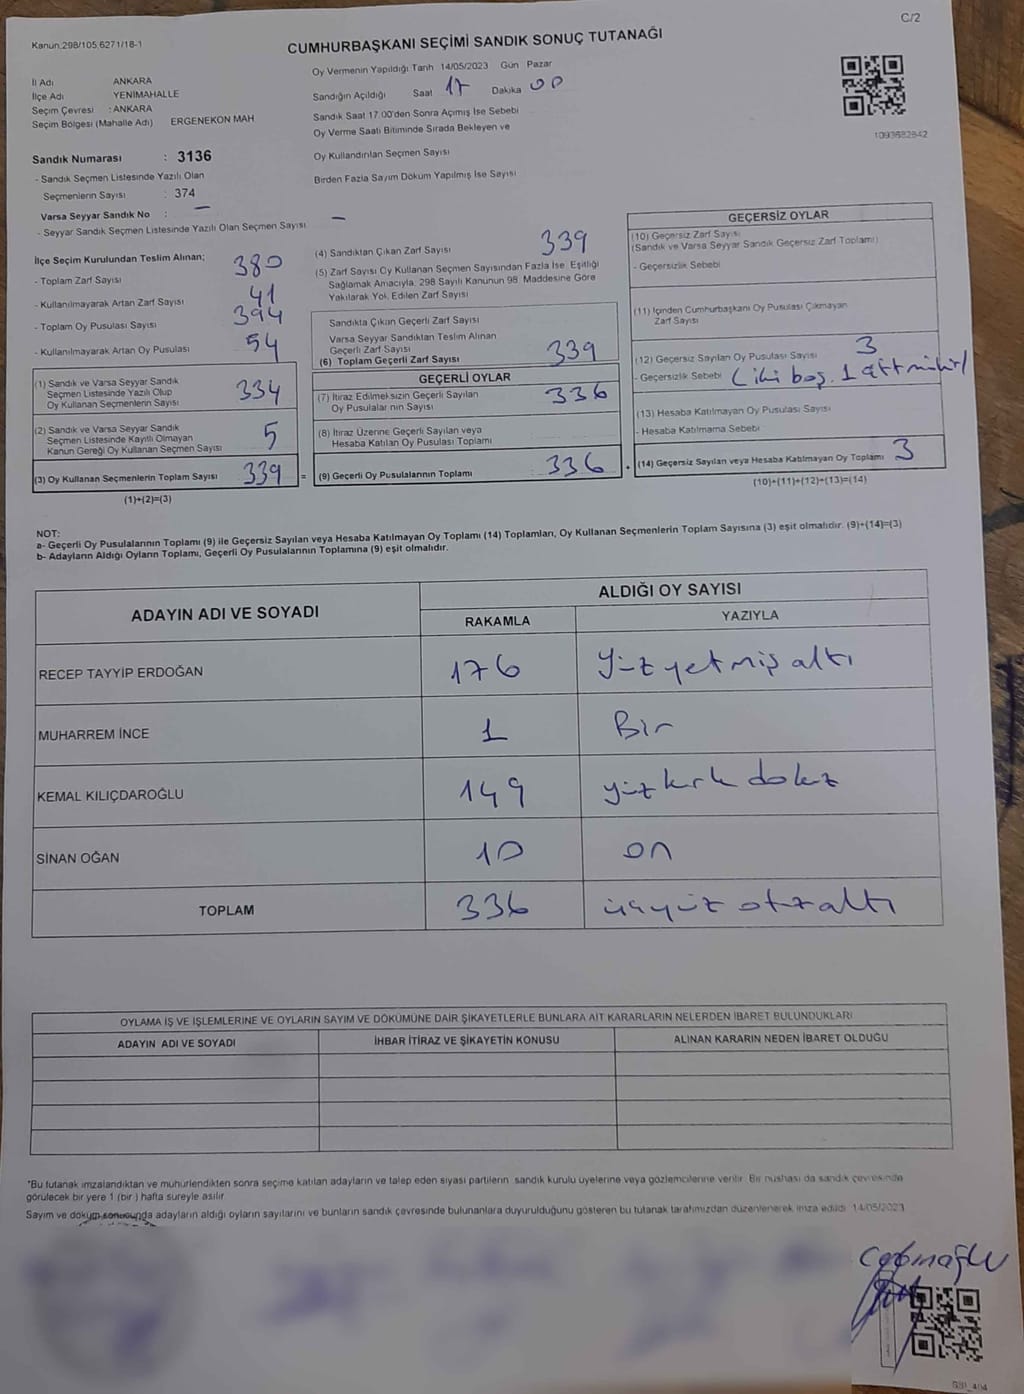 C/2
Kanun.298/105.6271/18-1
CUMHURBAŞKANI SEÇİMİ SANDIK SONUÇ TUTANAĞI
İl Adı ANKARA
İlçe Adı YENİMAHALLE
Seçim Çevresi : ANKARA
Seçim Bölgesi (Mahalle Adı) ERGENEKON MAH
Oy Vermenin Yapıldığı Tarih 14/05/2023 Gün Pazar
Sandığın Açıldığı Saat 17 Dakika 00
Sandık Saat 17.00'den Sonra Açımış İse Sebebi
Oy Verme Saati Bitiminde Sırada Bekleyen ve
Oy Kullandırılan Seçmen Sayısı
Birden Fazla Sayım Döküm Yapılmış İse Sayısı
1093682842
Sandık Numarası : 3136
- Sandık Seçmen Listesinde Yazılı Olan
Seçmenlerin Sayısı : 374
Varsa Seyyar Sandık No : –
- Seyyar Sandık Seçmen Listesinde Yazılı Olan Seçmen Sayısı –
İlçe Seçim Kurulundan Teslim Alınan;
- Toplam Zarf Sayısı 380
- Kullanılmayarak Artan Zarf Sayısı 41
- Toplam Oy Pusulası Sayısı 394
- Kullanılmayarak Artan Oy Pusulası 54
(1) Sandık ve Varsa Seyyar Sandık
Seçmen Listesinde Yazılı Olup
Oy Kullanan Seçmenlerin Sayısı 334
(2) Sandık ve Varsa Seyyar Sandık
Seçmen Listesinde Kayıtlı Olmayan
Kanun Gereği Oy Kullanan Seçmen Sayısı 5
(3) Oy Kullanan Seçmenlerin Toplam Sayısı 339 =
(1)+(2)=(3)
(4) Sandıktan Çıkan Zarf Sayısı 339
(5) Zarf Sayısı Oy Kullanan Seçmen Sayısından Fazla İse, Eşitliği
Sağlamak Amacıyla, 298 Sayılı Kanunun 98. Maddesine Göre
Yakılarak Yok Edilen Zarf Sayısı
Sandıkta Çıkan Geçerli Zarf Sayısı
Varsa Seyyar Sandıktan Teslim Alınan
Geçerli Zarf Sayısı
(6) Toplam Geçerli Zarf Sayısı 339
GEÇERLİ OYLAR
(7) İtiraz Edilmeksizin Geçerli Sayılan
Oy Pusulalarının Sayısı 336
(8) İtiraz Üzerine Geçerli Sayılan veya
Hesaba Katılan Oy Pusulası Toplamı
(9) Geçerli Oy Pusulalarının Toplamı 336 +
GEÇERSİZ OYLAR
(10) Geçersiz Zarf Sayısı
(Sandık ve Varsa Seyyar Sandık Geçersiz Zarf Toplamı)
- Geçersizlik Sebebi
(11) İçinden Cumhurbaşkanı Oy Pusulası Çıkmayan
Zarf Sayısı
(12) Geçersiz Sayılan Oy Pusulası Sayısı 3
- Geçersizlik Sebebi ( iki boş. 1 çift mühür)
(13) Hesaba Katılmayan Oy Pusulası Sayısı
- Hesaba Katılmama Sebebi
(14) Geçersiz Sayılan veya Hesaba Katılmayan Oy Toplamı 3
(10)+(11)+(12)+(13)=(14)
NOT:
a- Geçerli Oy Pusulalarının Toplamı (9) ile Geçersiz Sayılan veya Hesaba Katılmayan Oy Toplamı (14) Toplamları, Oy Kullanan Seçmenlerin Toplam Sayısına (3) eşit olmalıdır. (9)+(14)=(3)
b- Adayların Aldığı Oyların Toplamı, Geçerli Oy Pusulalarının Toplamına (9) eşit olmalıdır.
ADAYIN ADI VE SOYADI ALDIĞI OY SAYISI
RAKAMLA YAZIYLA
RECEP TAYYİP ERDOĞAN 176 Yüz yetmiş altı
MUHARREM İNCE 1 Bir
KEMAL KILIÇDAROĞLU 149 yüz kırk dokuz
SİNAN OĞAN 10 on
TOPLAM 336 üçyüz otuz altı
OYLAMA İŞ VE İŞLEMLERİNE VE OYLARIN SAYIM VE DÖKÜMÜNE DAİR ŞİKAYETLERLE BUNLARA AİT KARARLARIN NELERDEN İBARET BULUNDUKLARI
ADAYIN ADI VE SOYADI İHBAR İTİRAZ VE ŞİKAYETİN KONUSU ALINAN KARARIN NEDEN İBARET OLDUĞU
*Bu tutanak imzalandıktan ve mühürlendikten sonra seçime katılan adayların ve talep eden siyasi partilerin sandık kurulu üyelerine veya gözlemcilerine verilir. Bir nüshası da sandık çevresinde
görülecek bir yere 1 (bir ) hafta süreyle asılır
Sayım ve döküm sonucunda adayların aldığı oyların sayılarını ve bunların sandık çevresinde bulunanlara duyurulduğunu gösteren bu tutanak tarafımızdan düzenlenerek imza edildi. 14/05/2023